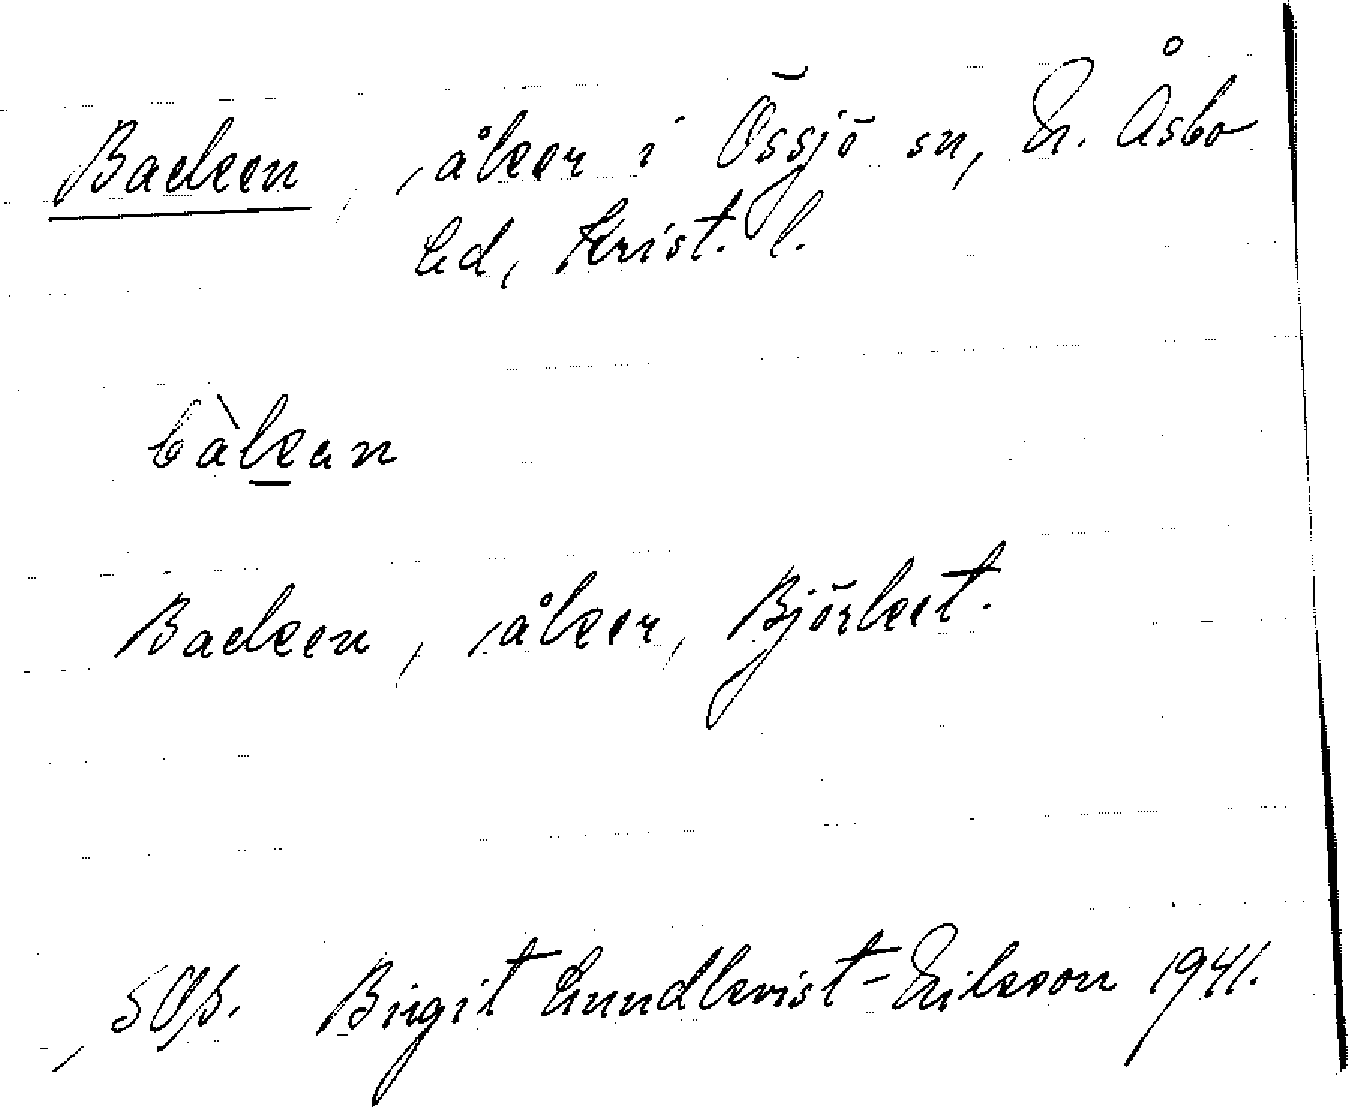 Backen, åker i Össjö sn, N. Åsbo
hd, Krist. l.
bàkan
Backen, åker, Björket.
Birgit Lundkvist-Eriksson 1941.